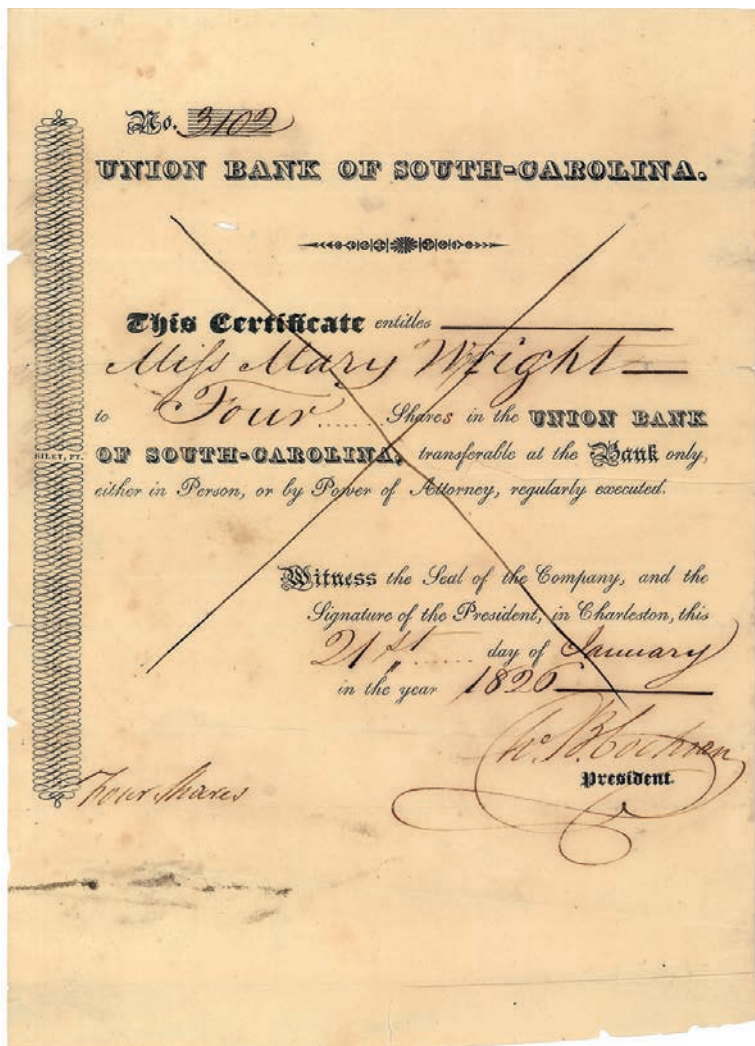 No. 3102
UNION BANK OF SOUTH-CAROLINA.
This Certificate entitles
Miss Mary Wright
to Four ...... Shares in the UNION BANK
OF SOUTH-CAROLINA, transferable at the Bank only,
either in Person, or by Power of Attorney, regularly executed.
RILEY, PT.
Witness the Seal of the Company, and the
Signature of the President, in Charleston, this
21st ...... day of January
in the year 1826
Chs. B. Cochran
President.
Four Shares